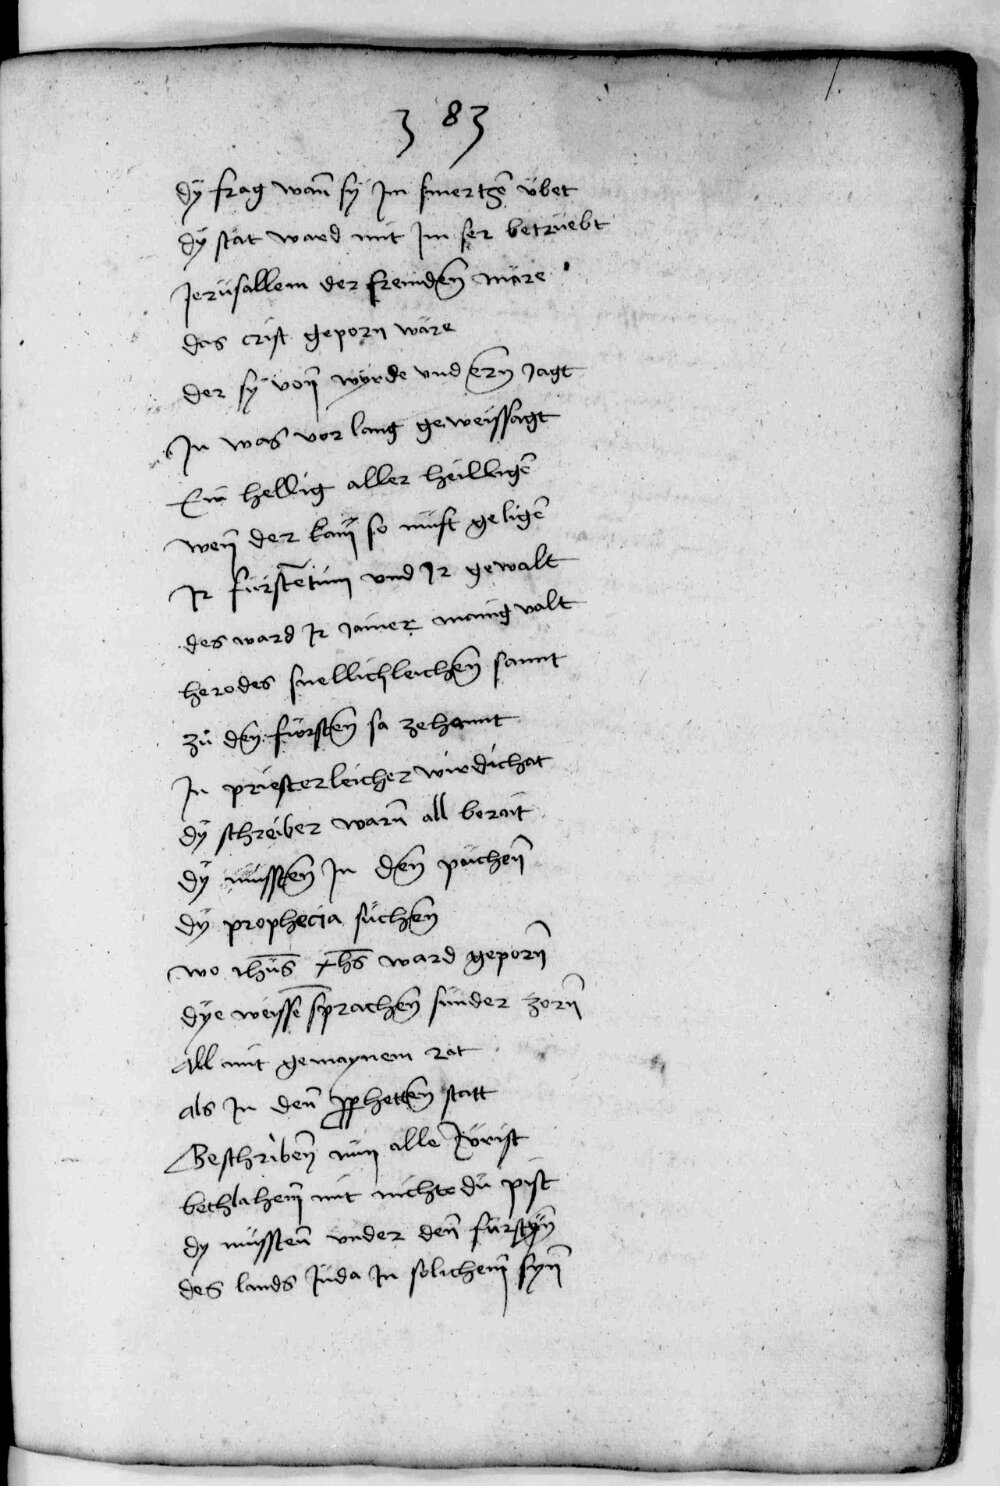 383
dÿ frag wañ sÿ Jm smertzẽ übet
dÿ stat ward mit Jm ser betrüebt
Jerüsallem der fremdeñ märe
das crist geporn wäre
der sÿ voñ wÿrde vnd ern Jagt
Jn was vor lang geweissagt
Ein hellig aller heilligẽ
weñ der kam̃ so müst geligẽ
Jr fürstẽtüm vnd Jr gewalt
des ward Jr Jamer manigvalt
herodes snellichleicheñ sannt
zü den fürsten sa zehannt
Jn priesterleicher wirdichat
dÿ schreiber warñ all berait
dÿ müssten Jn den pücheñ
dÿ prophecia süchen
wo ihüs xp̄s ward geporñ
dÿe weisse sprachen sunder zorñ
All mit gemaynem rat
als Jn deñ pphetten statt
Beschribeñ nün alle frist
bethlahem̃ mit nichte dü pist
dy mÿssteñ vnder deñ fürstÿñ
des lands Jüda Jn solichem̃ sÿñ